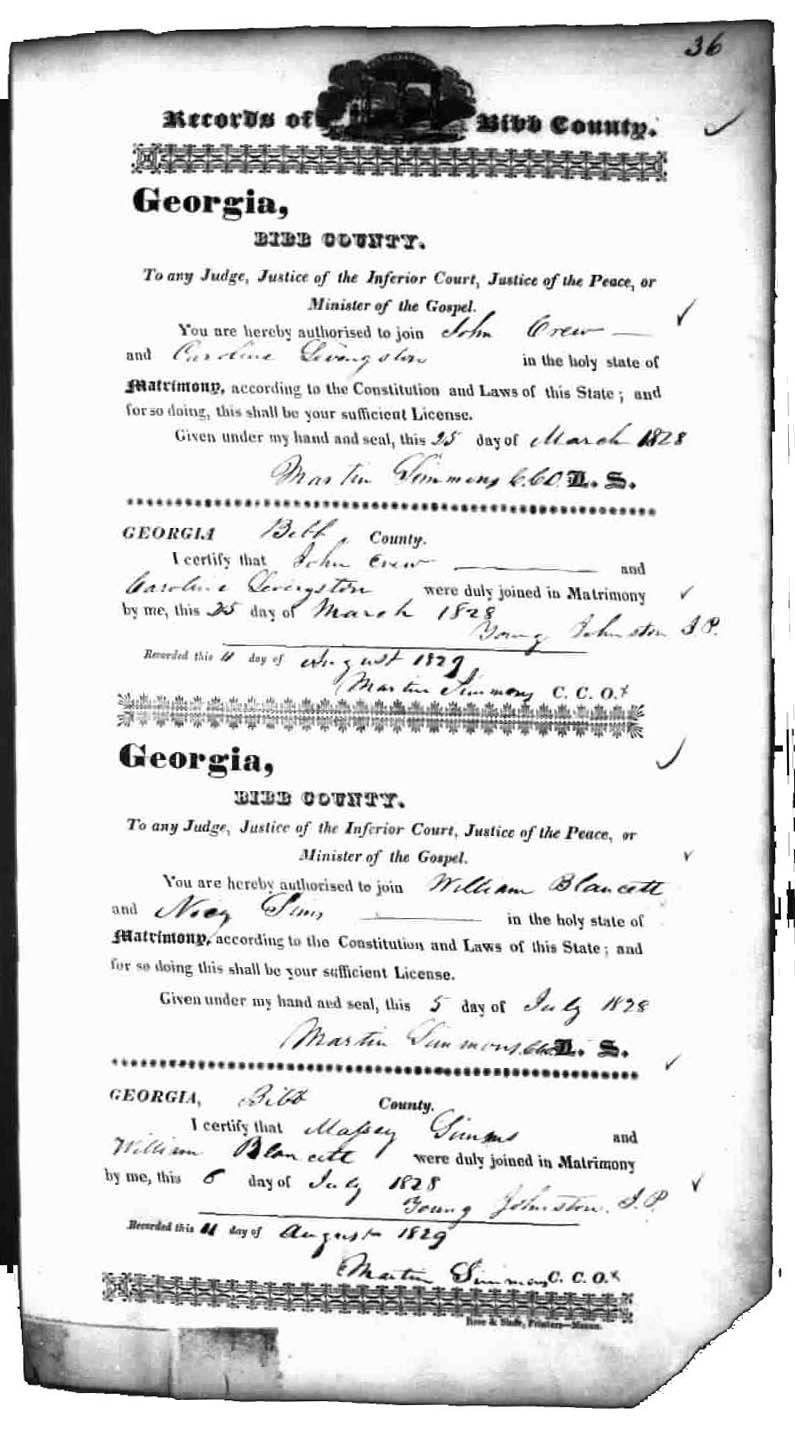 36
Records of Bibb County.
Georgia,
BIBB COUNTY.
To any Judge, Justice of the Inferior Court, Justice of the Peace, or
Minister of the Gospel.
You are hereby authorised to join John Crew
and Caroline Livingston in the holy state of
Matrimony, according to the Constitution and Laws of this State; and
for so doing, this shall be your sufficient License.
Given under my hand and seal, this 25 day of March 1828
Martin Simmons C.C.O. L. S.
GEORGIA Bibb County.
I certify that John Crew and
Caroline Livingston were duly joined in Matrimony
by me, this 25 day of March 1828
Young Johnston J.P.
Recorded this 11 day of August 1829
Martin Simmons C. C. O.
Georgia,
BIBB COUNTY.
To any Judge, Justice of the Inferior Court, Justice of the Peace, or
Minister of the Gospel.
You are hereby authorised to join William Blancett
and Nicy Sims in the holy state of
Matrimony, according to the Constitution and Laws of this State; and
for so doing this shall be your sufficient License.
Given under my hand aed seal, this 5 day of July 1828
Martin Simmons C.C.O. L. S.
GEORGIA, Bibb County.
I certify that Massey Simms and
William Blancett were duly joined in Matrimony
by me, this 6 day of July 1828
Young Johnston. J.P.
Recorded this 11 day of August 1829
Martin Simmons C. C. O.
Rose & Slade, Printers—Macon.